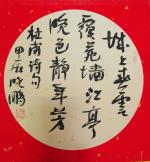 城上春雲
覆苑墙江亭
晚色静年芳
杜甫诗句
甲辰晓鹏